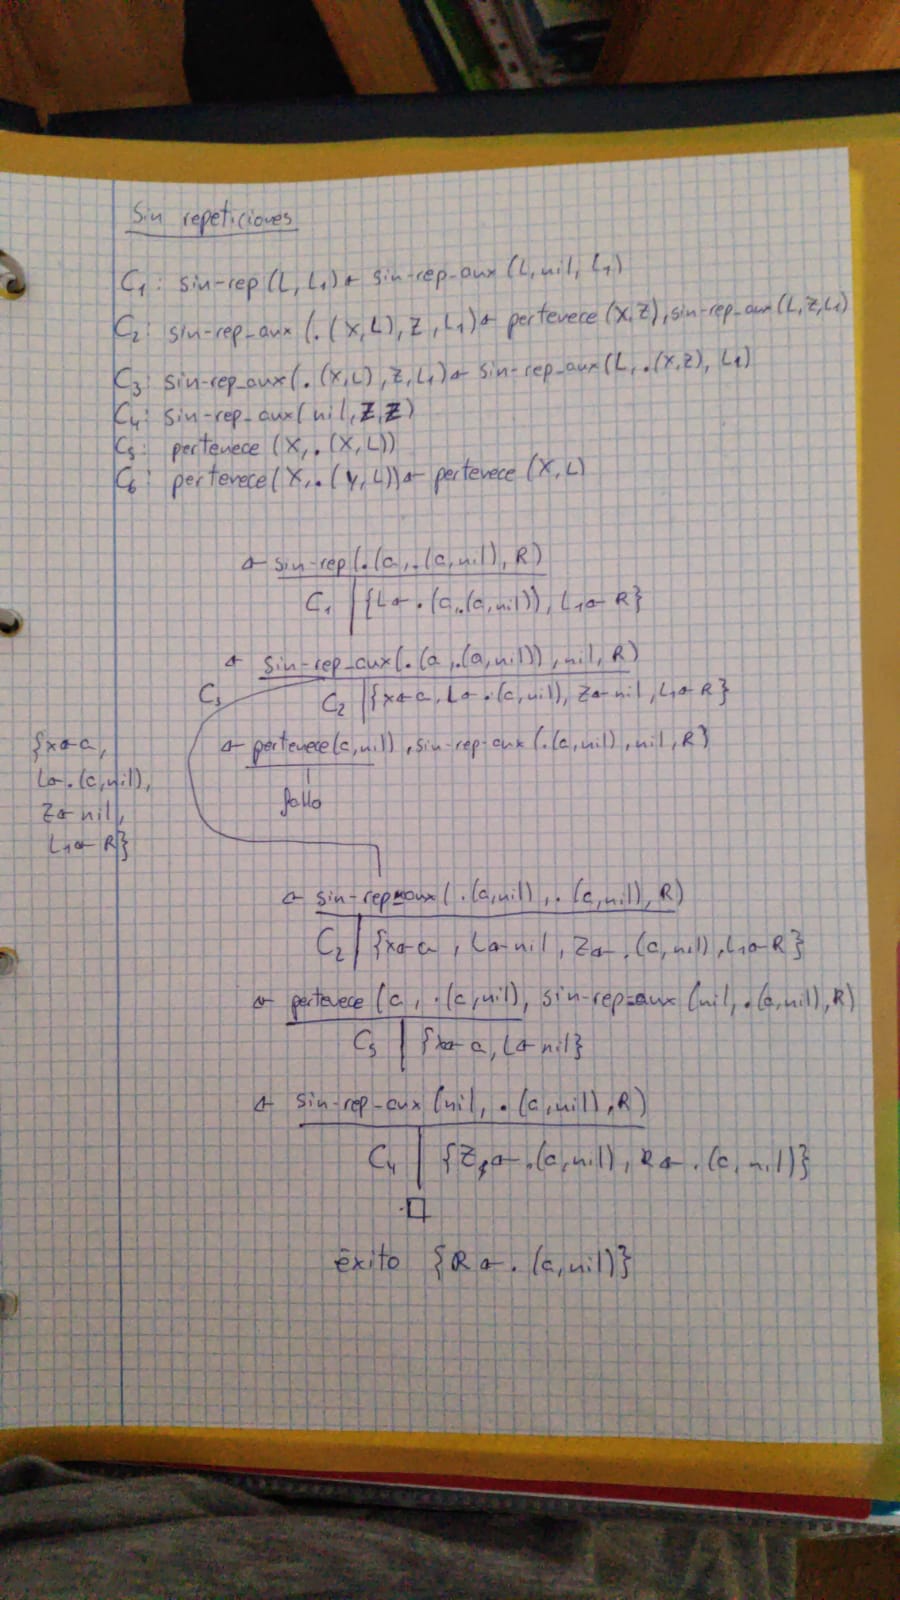 Sin repeticiones
C₁: sin-rep (L, L₁) ← sin-rep-aux (L, nil, L₁)
C₂: sin-rep_aux (.(X,L), Z, L₁) ← pertenece (X,Z), sin-rep_aux (L,Z,L₁)
C₃: sin-rep_aux(.(X,L), Z, L₁) ← sin-rep_aux(L, .(X,Z), L₁)
C₄: sin-rep_aux(nil, Z, Z)
C₅: pertenece (X, .(X, L))
C₆: pertenece(X, .(Y, L)) ← pertenece (X, L)
← sin-rep(.(a, .(a, nil), R)
C₁ {L ← .(a, .(a, nil)), L₁ ← R}
← sin-rep_aux(.(a, .(a, nil)), nil, R)
C₃ C₂ {x ← a, L ← .(a, nil), Z ← nil, L₁ ← R}
{x ← a,
L ← .(a, nil),
Z ← nil,
L₁ ← R}
← pertenece(a, nil)), sin-rep-aux (.(a, nil), nil, R)
fallo
← sin-rep-aux (.(a, nil), .(a, nil), R)
C₂ {x ← a, L ← nil, Z ← .(a, nil), L₁ ← R}
← pertenece (a, .(a, nil), sin-rep-aux (nil, .(a, nil), R)
C₅ {x ← a, L ← nil}
← sin-rep-aux (nil, .(a, nil), R)
C₄ {Z ← .(a, nil), R ← .(a, nil)}
□
éxito {R ← .(a, nil)}